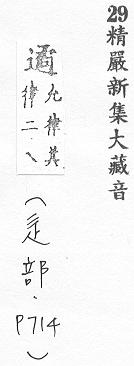 29精嚴新集大藏音
遹允律其
律二、
（辵部．
P714）